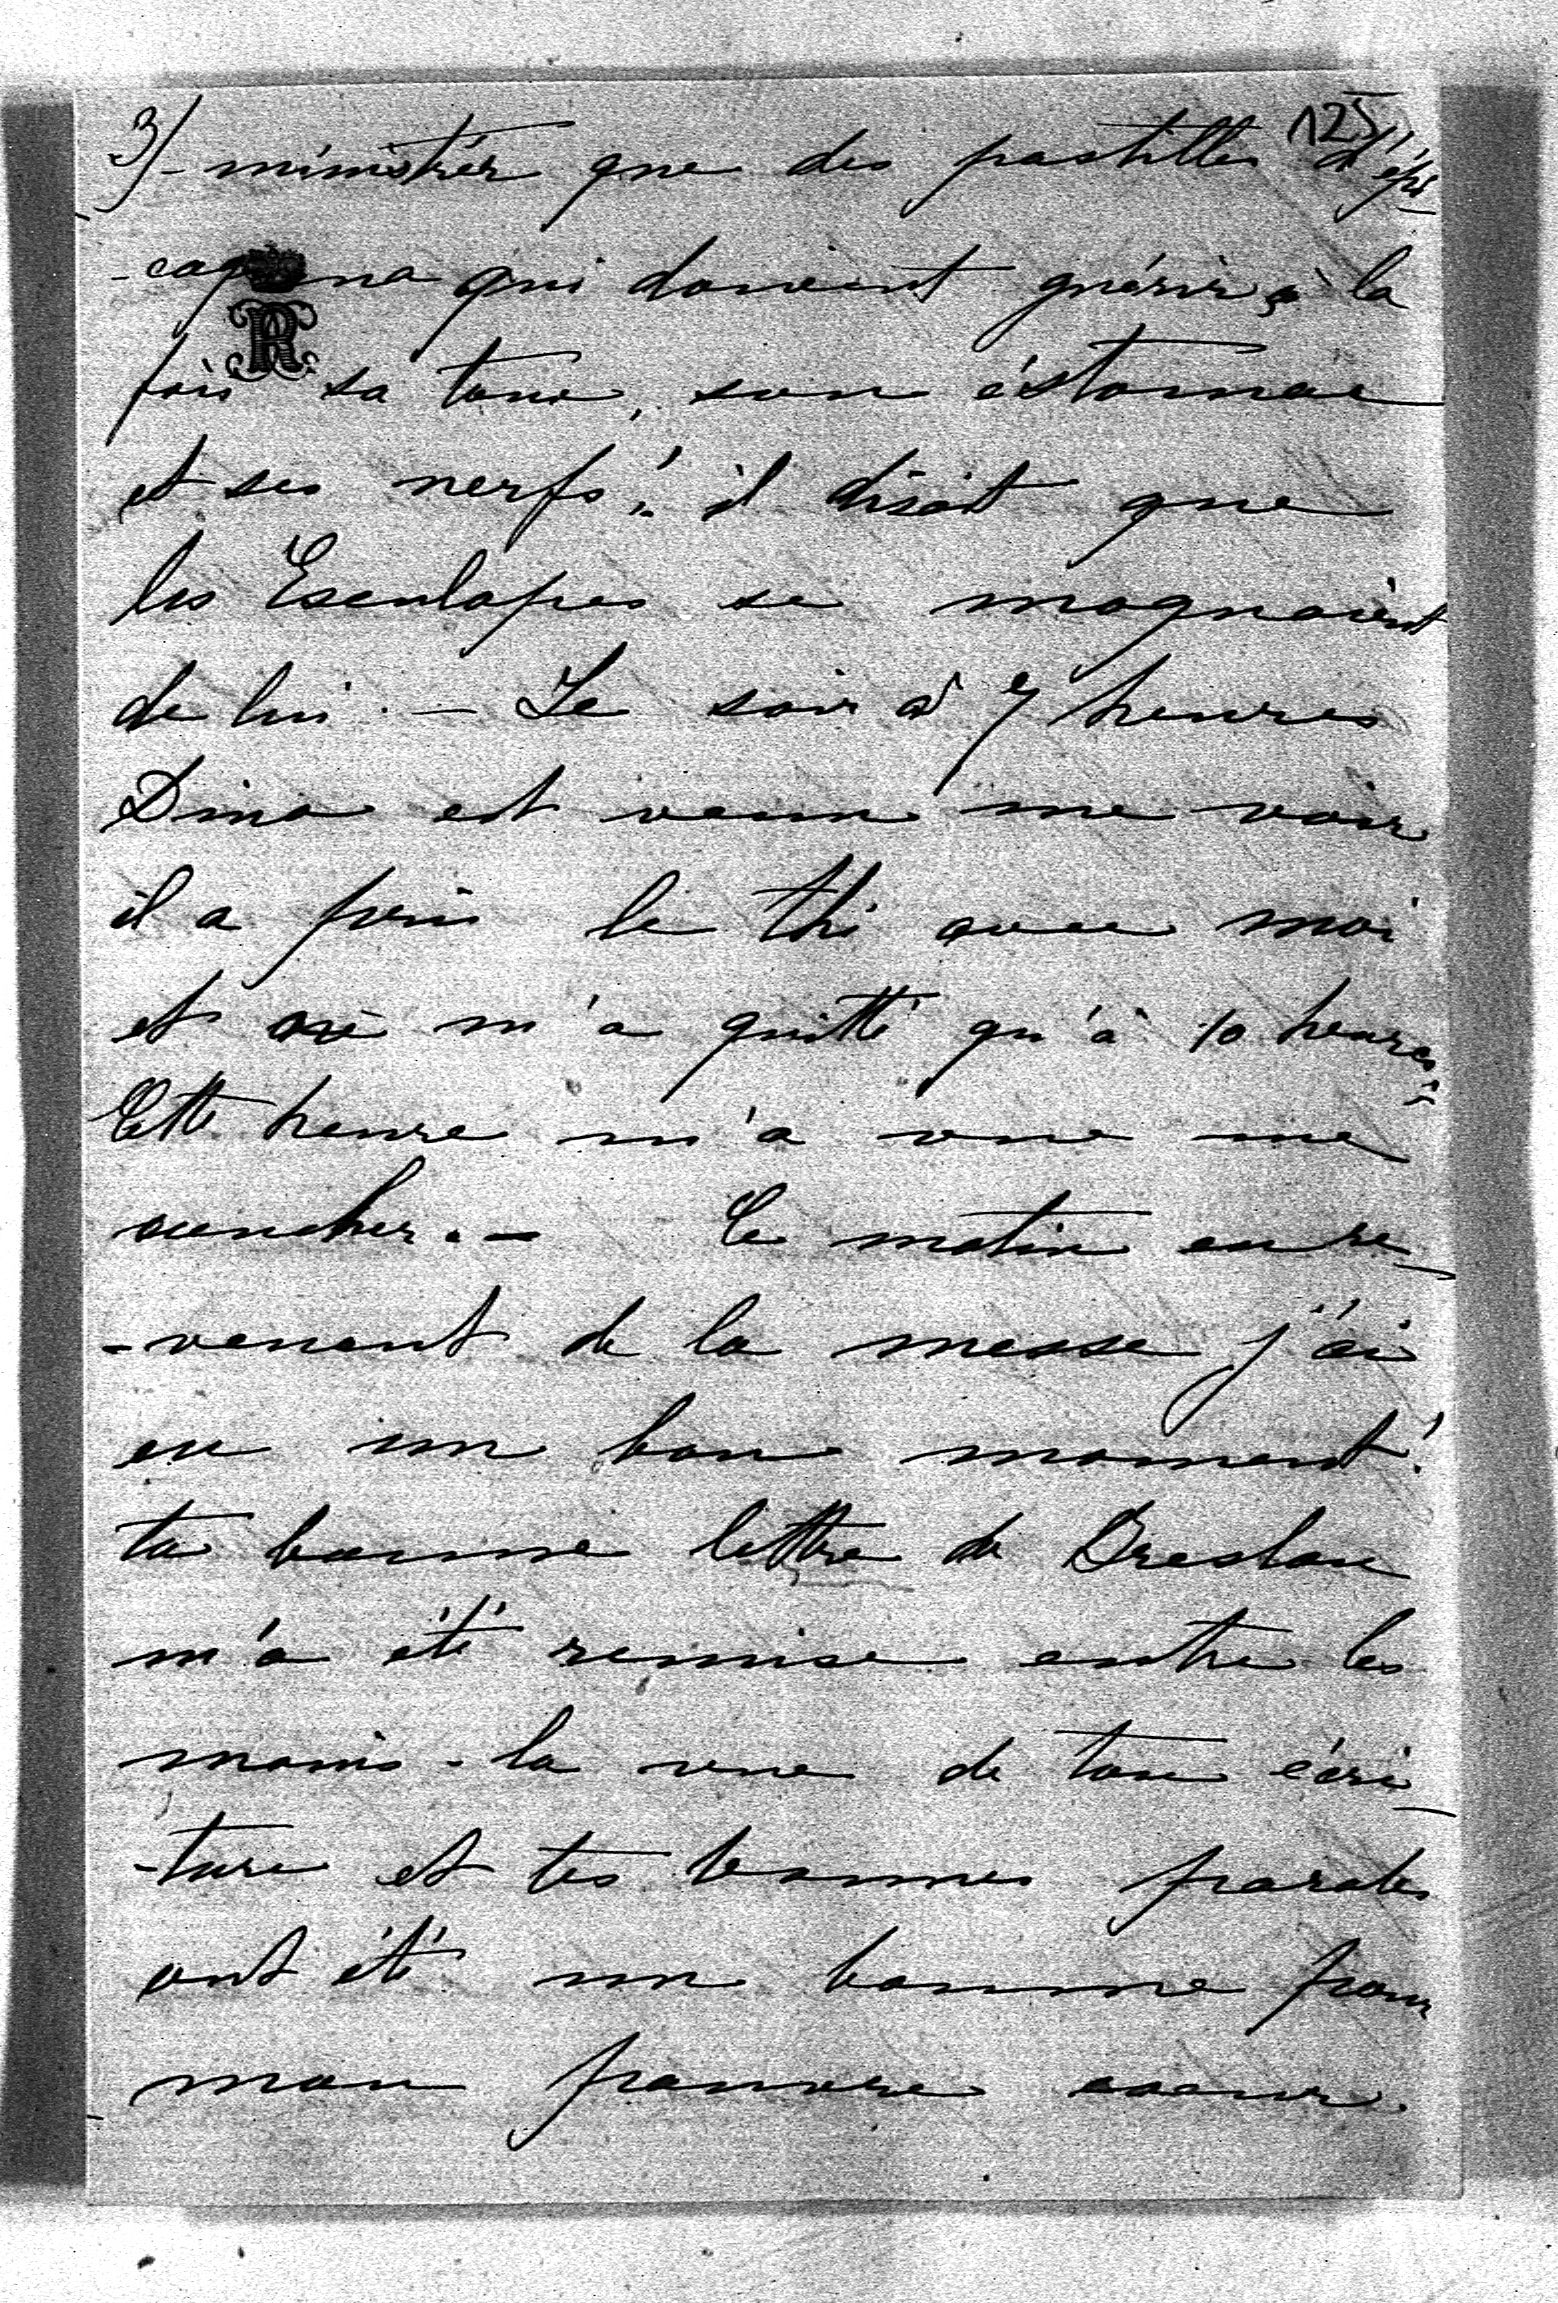 3) 125
-ministrér que des pastilles d'épi-
-caquana qui doivent guérir à la
fois sa toux, son éstomac
et ses nerfs! il disait que
les Esculapes se moquaient
de lui. — Le soir à 7 heures
Dina est venu me voir
il a pris le thé avec moi
et ne m'a quitté qu'à 10 heures
Cette heure m'a vue me
coucher. — Ce matin en re-
-venant de la messe j'ai
eu un bon moment!
ta bonne lettre de Breslau
m'a été remise entre les
mains - la vue de ton écri-
-ture et tes bonnes paroles
ont été un baume pour
mon pauvre coeur.